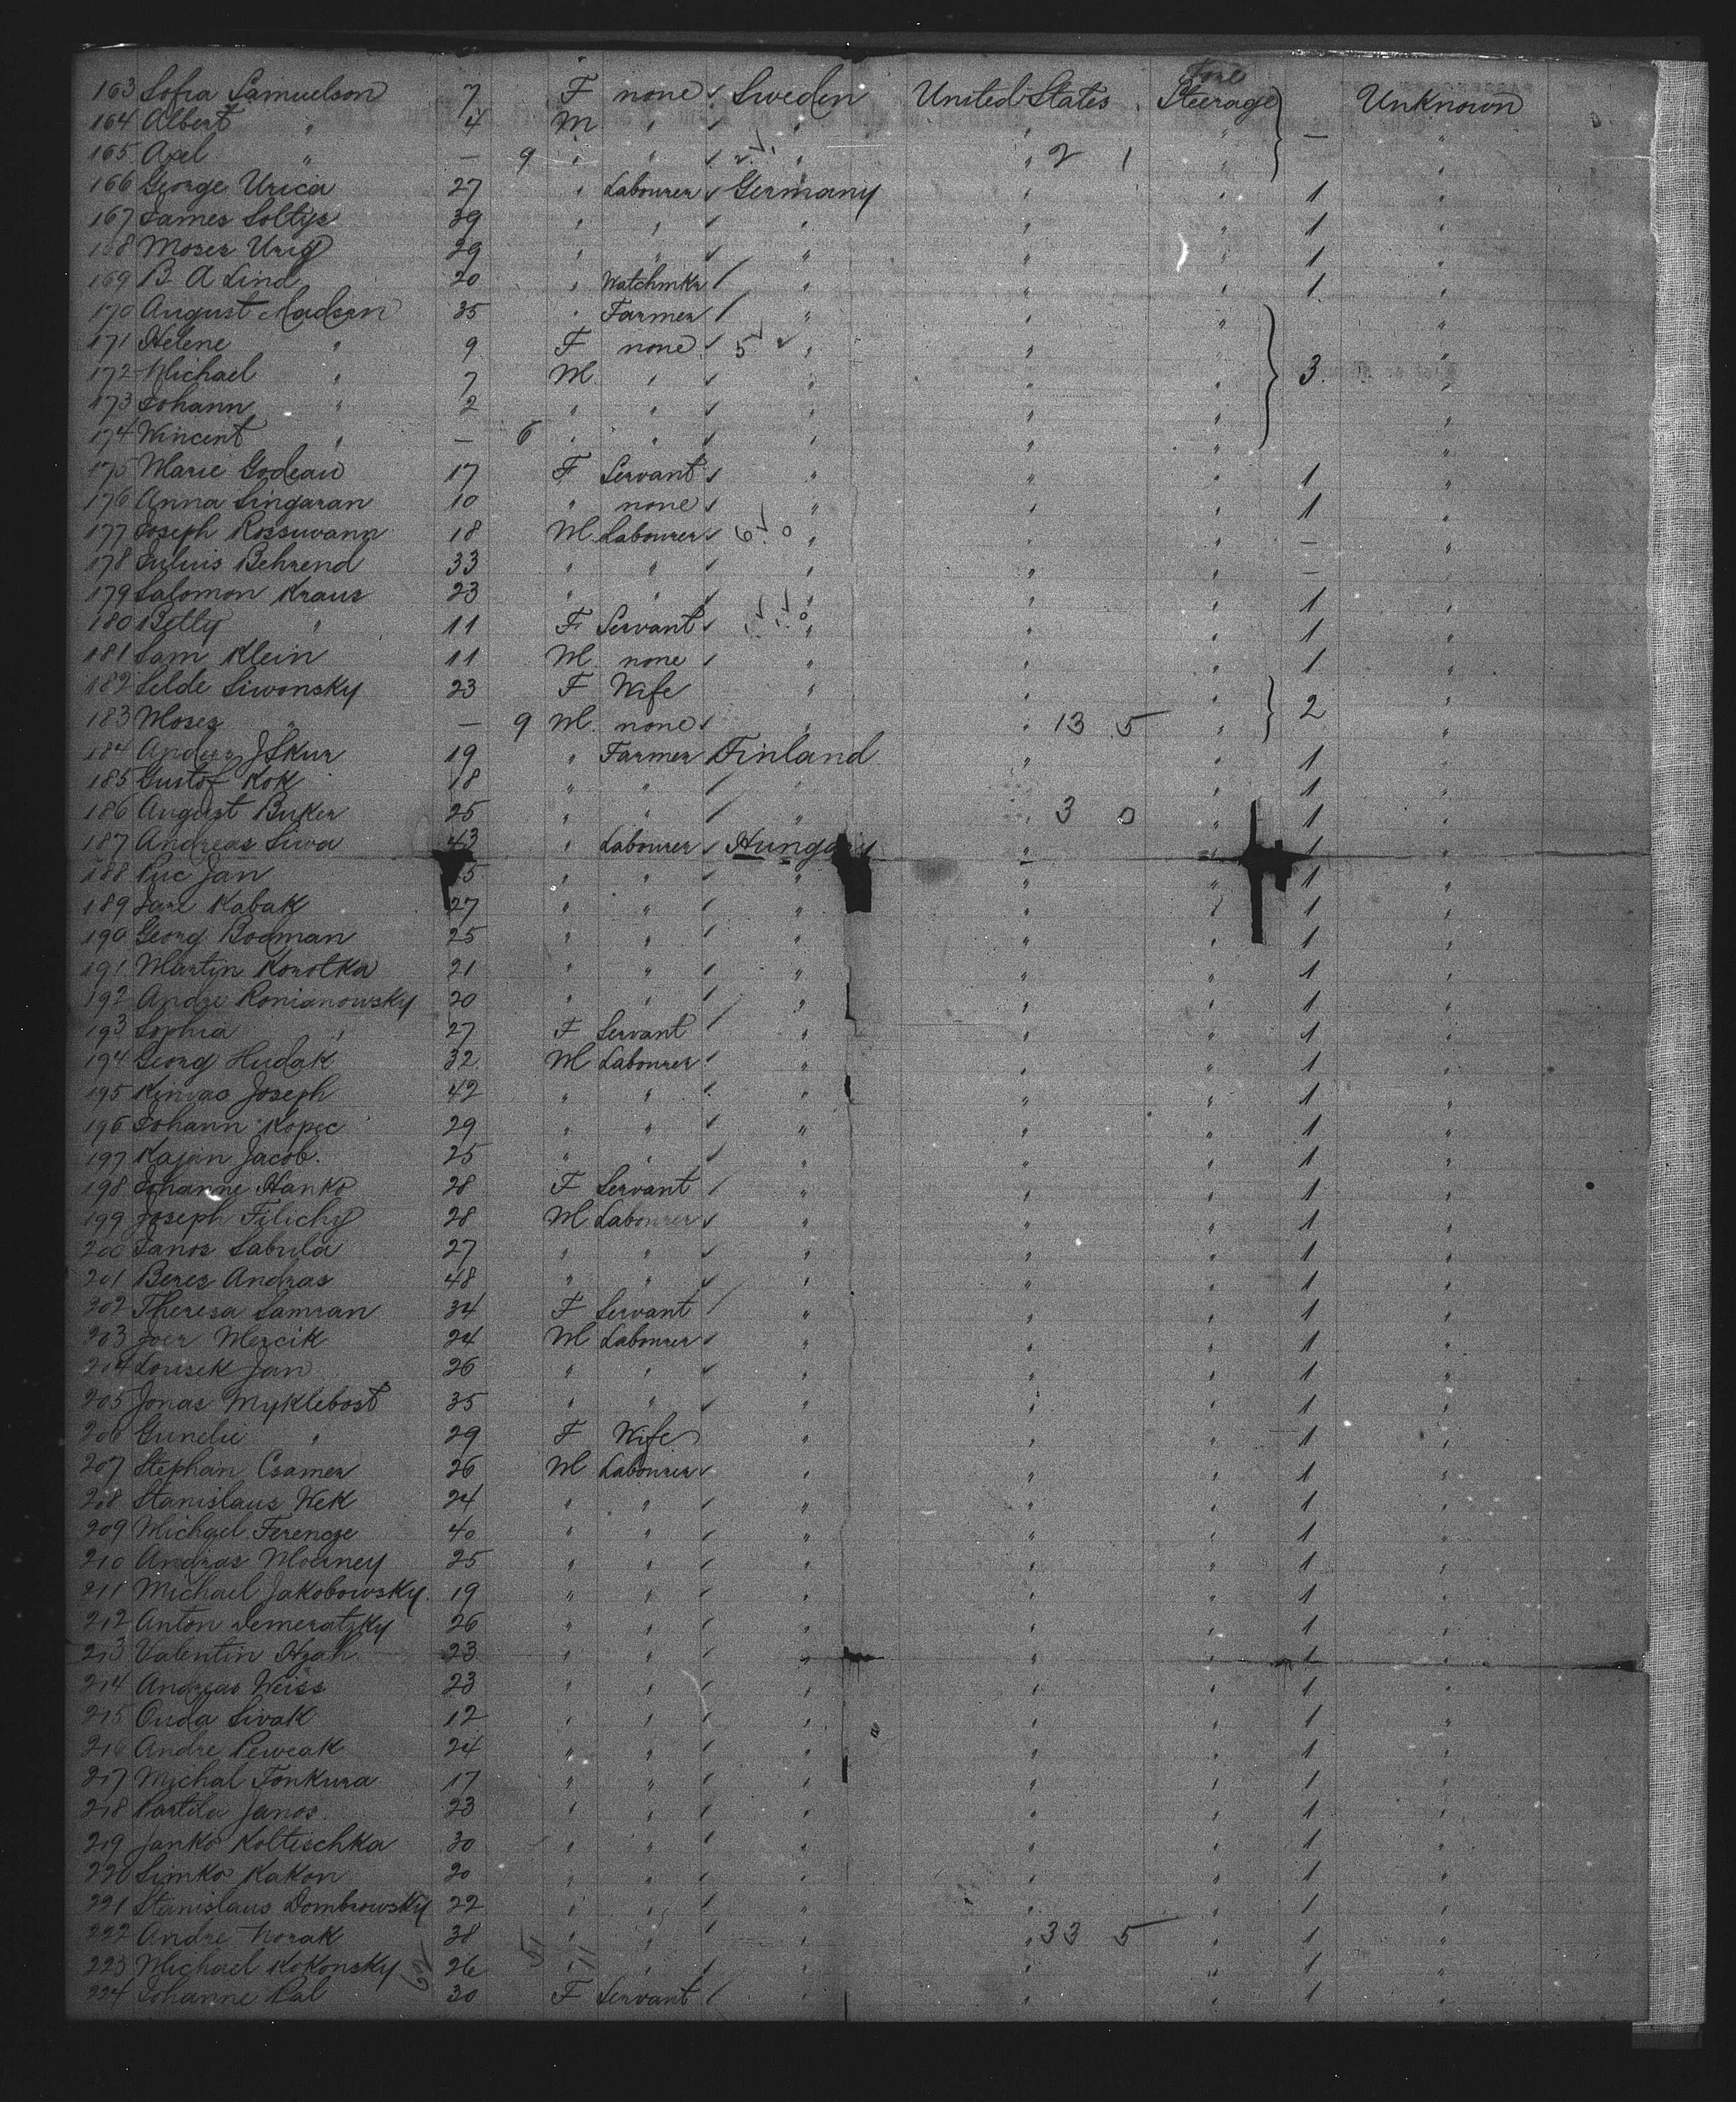 Fore
163 Sofia Samuelson 7 F none Sweden United States Steerage Unknown
164 Albert " 4 M " " " " — "
165 Axel " — 9 " " " " 2 1 " "
166 George Urica 27 " Labourer Germany " " 1 "
167 James Soltys 39 " " " " " 1 "
168 Moses Urig 29 " " " " " 1 "
169 B A Lind 20 " Watchmkr " " " 1 "
170 August Madsen 35 " Farmer " " " "
171 Helene " 9 F none 5 " " " "
172 Michael " 7 M " " " " 3 "
173 Johann " 2 " " " " " "
174 Wincent " — 6 " " " " " "
175 Marie Godeau 17 F Servant " " " 1 "
176 Anna Singaran 10 " none " " " 1 "
177 Joseph Rossuwann 18 M Labourer 6 0 " " " — "
178 Julius Behrend 33 " " " " " — "
179 Salomon Kraus 23 " " " " " 1 "
180 Betty " 11 F Servant " " " 1 "
181 Sam Klein 11 M none " " " 1 "
182 Selde Siwonsky 23 F Wife " " " 2 "
183 Moses " — 9 M none " " 13 5 " "
184 Anders J Skur 19 " Farmer Finland " " 1 "
185 Gustof Kok 18 " " " " " 1 "
186 August Buker 25 " " " " 3 0 " 1 "
187 Andreas Siwa 43 " Labourer Hungary " " 1 "
188 Puc Jan 5 " " " " " 1 "
189 Jare Kabak 27 " " " " " 1 "
190 Georg Bodman 25 " " " " " 1 "
191 Martyn Korotka 21 " " " " " 1 "
192 Andre Romanowsky 20 " " " " " 1 "
193 Sophia " 27 F Servant " " " 1 "
194 Georg Hudak 32 M Labourer " " " 1 "
195 Kinvas Joseph 42 " " " " " 1 "
196 Johann Kopec 29 " " " " " 1 "
197 Kajan Jacob 25 " " " " " 1 "
198 Johanne Hanko 28 F Servant " " " 1 "
199 Joseph Filichy 28 M Labourer " " " 1 "
200 Janos Sabula 27 " " " " " 1 "
201 Beres Andras 48 " " " " " 1 "
202 Theresa Samran 34 F Servant " " " 1 "
203 Joer Mercik 24 M Labourer " " " 1 "
204 Lousek Jan 26 " " " " " 1 "
205 Jonas Myklebost 35 " " " " " 1 "
206 Gunelie " 29 F Wife " " " 1 "
207 Stephan Csamer 26 M Labourer " " " 1 "
208 Stanislaus Wek 24 " " " " " 1 "
209 Michael Ferencze 40 " " " " " 1 "
210 Andras Morney 25 " " " " " 1 "
211 Michael Jakobowsky 19 " " " " " 1 "
212 Anton Demeratzky 26 " " " " " 1 "
213 Valentin Hzah 23 " " " " " 1 "
214 Andreas Weiss 23 " " " " " 1 "
215 Onda Sivak 12 " " " " " 1 "
216 Andre Peweak 24 " " " " " 1 "
217 Michal Tonkura 17 " " " " " 1 "
218 Partila Janos 23 " " " " " 1 "
219 Janko Koltischka 30 " " " " " 1 "
220 Simko Kakon 20 " " " " " 1 "
221 Stanislaus Dombrowsky 22 " " " " " 1 "
222 Andre Norak 38 " " " " 33 5 " 1 "
223 Michael Kokonsky 26 " " " " " 1 "
224 Johanne Pal 30 F Servant " " " 1 "